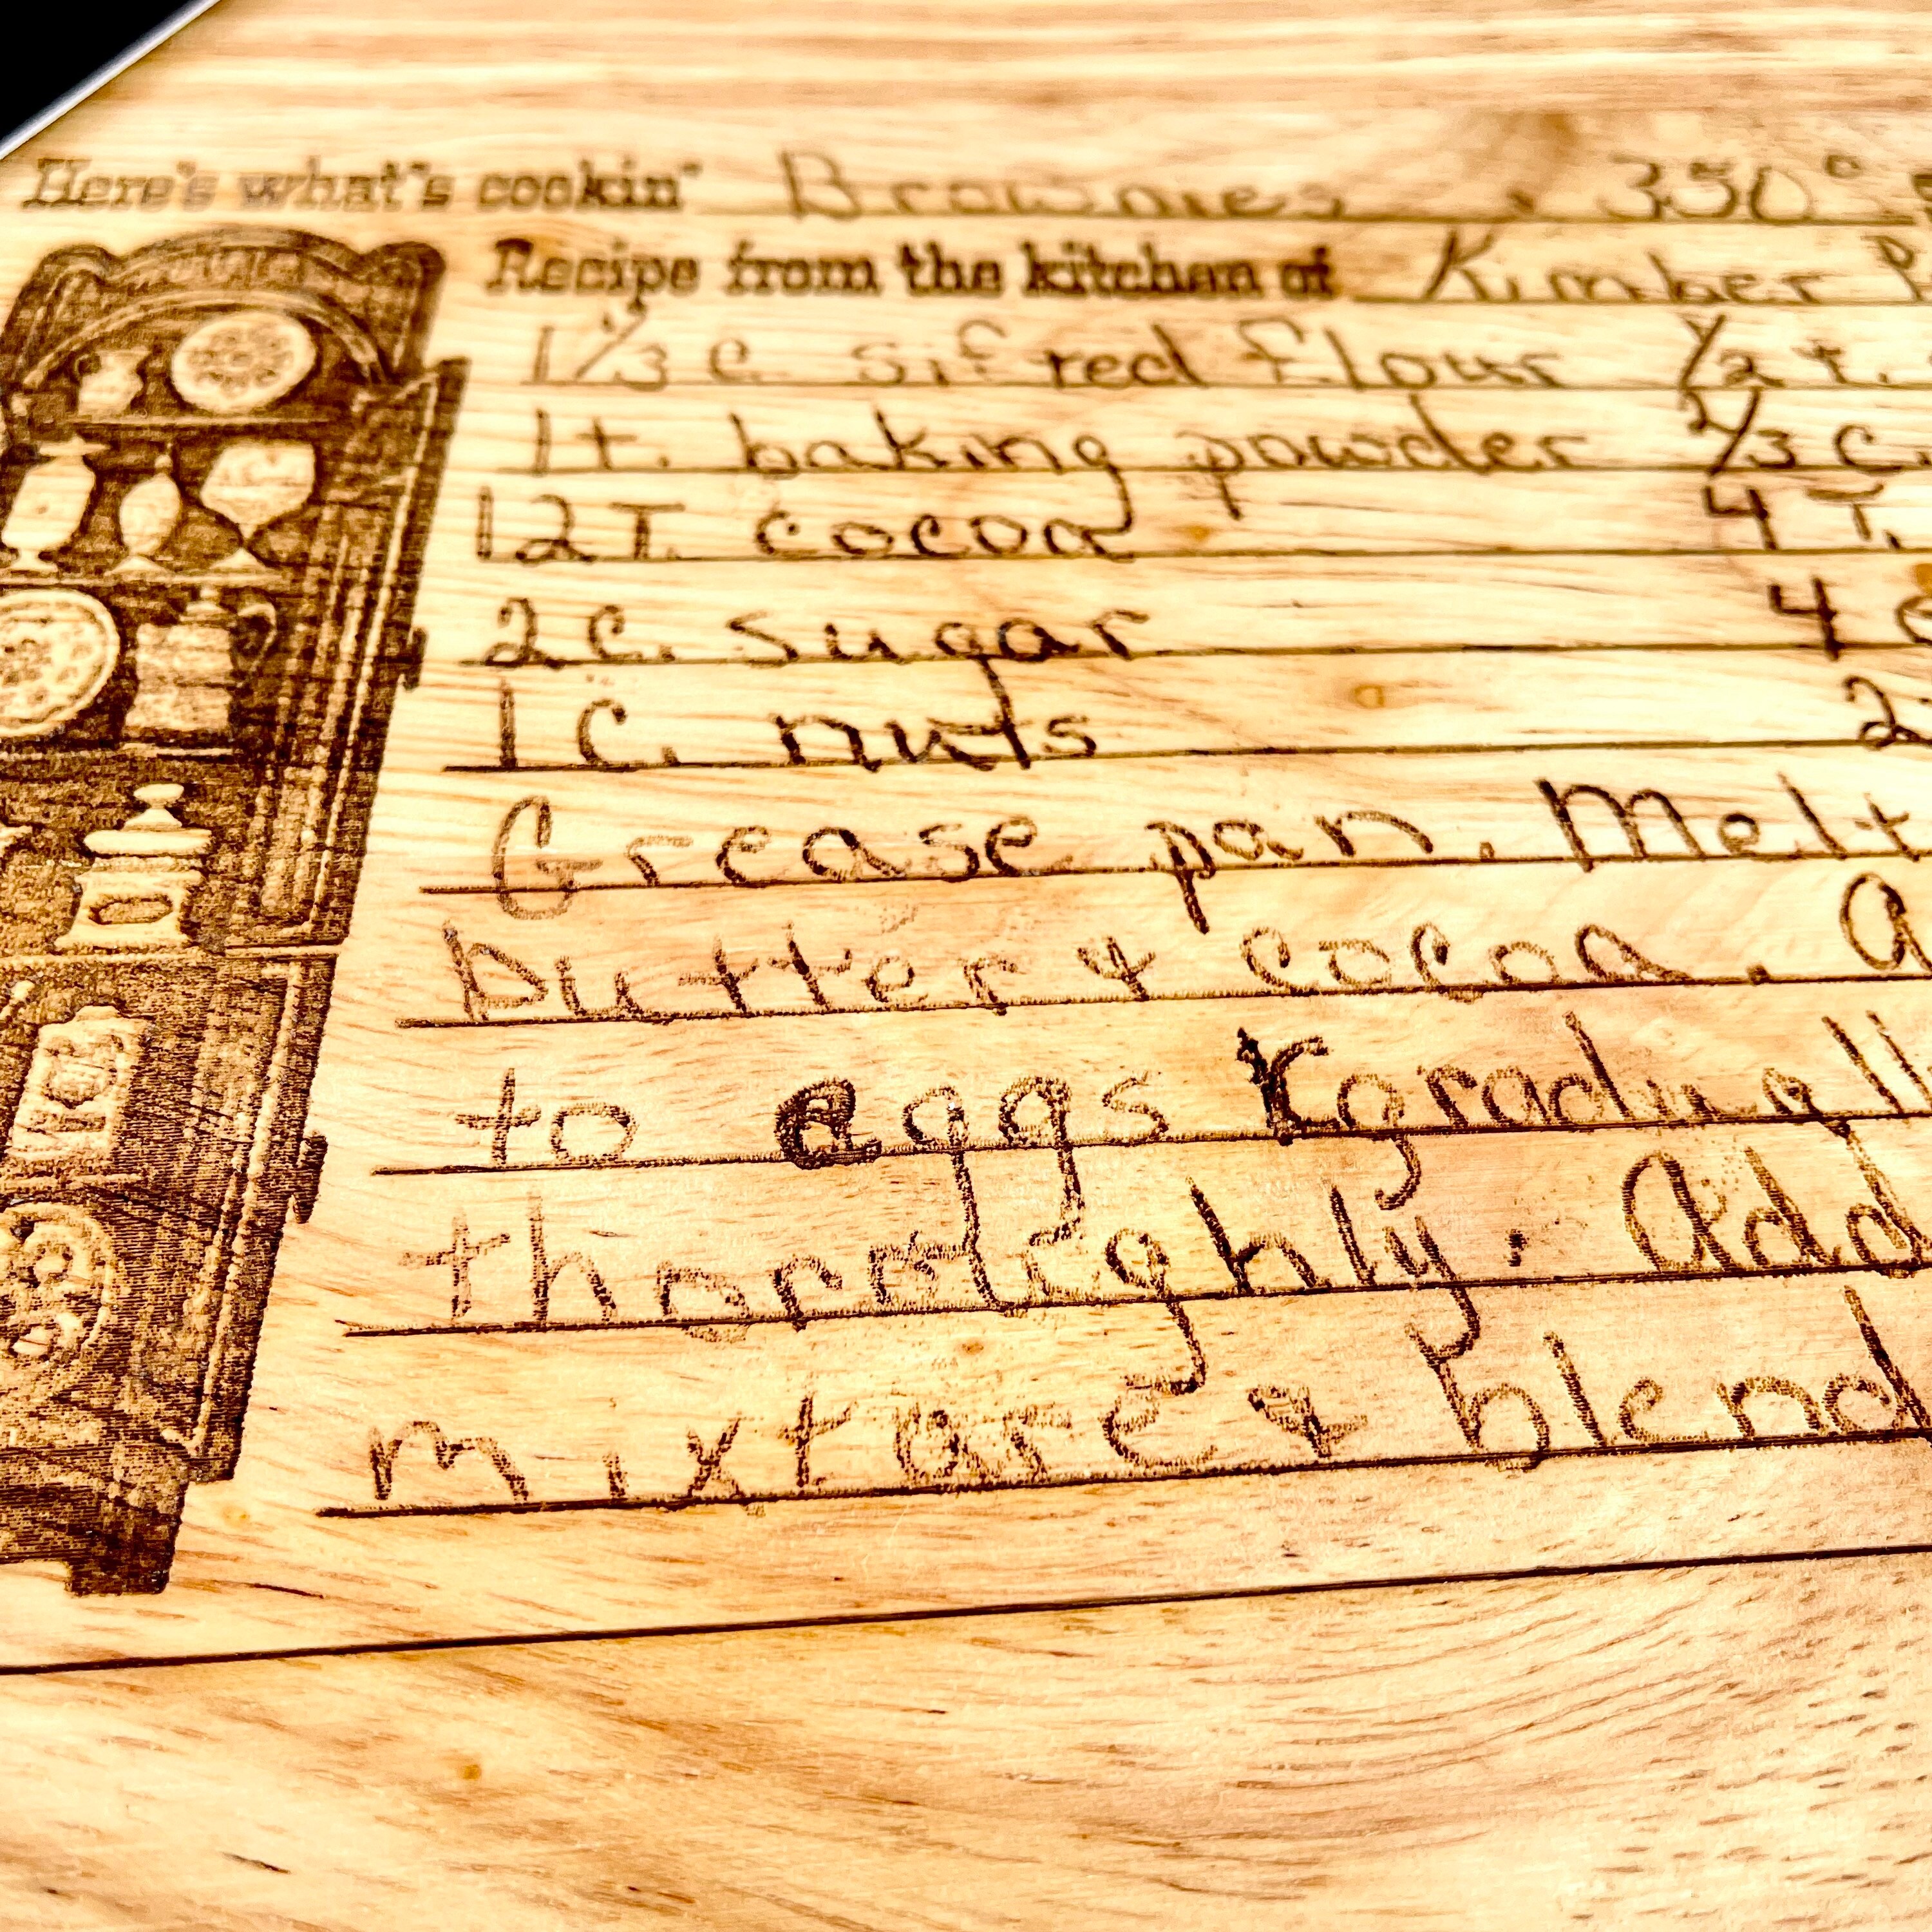 Here's what's cookin' Brownies 350°
Recipe from the kitchen of Kimber
1 1/3 c. sifted flour 1/2 t.
1 t. baking powder 2/3 c.
12 T. cocoa 4 T.
2 c. sugar 4
1 c. nuts 2
Grease pan. Melt
butter & cocoa. a
to eggs gradually
thoroughly. Add
mixture & blend